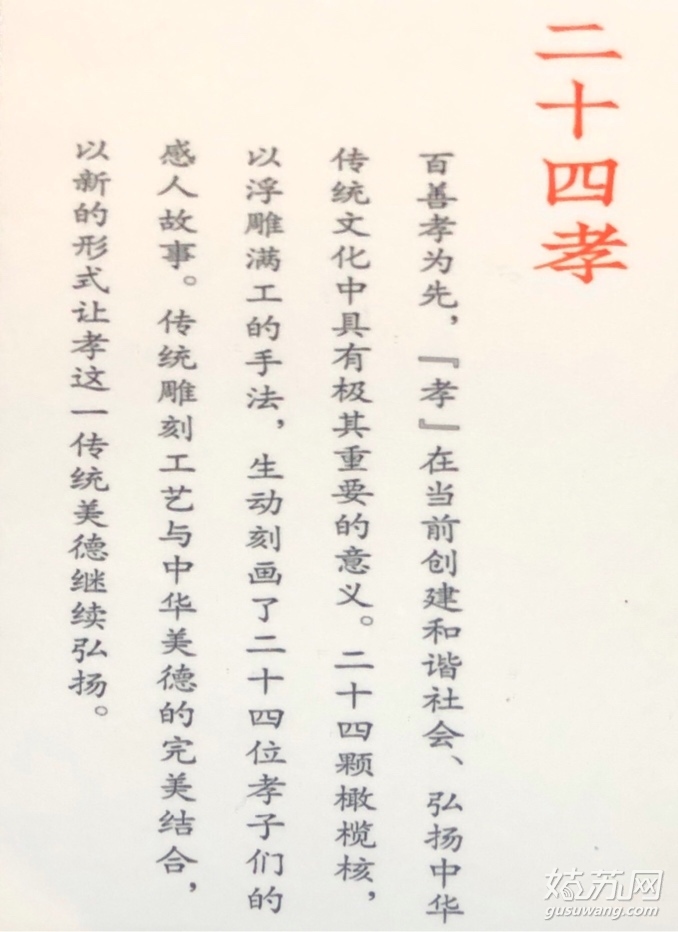 二十四孝
百善孝为先，『孝』在当前创建和谐社会、弘扬中华
传统文化中具有极其重要的意义。二十四颗橄榄核，
以浮雕满工的手法，生动刻画了二十四位孝子们的
感人故事。传统雕刻工艺与中华美德的完美结合，
以新的形式让孝这一传统美德继续弘扬。
姑苏网
gusuwang.com